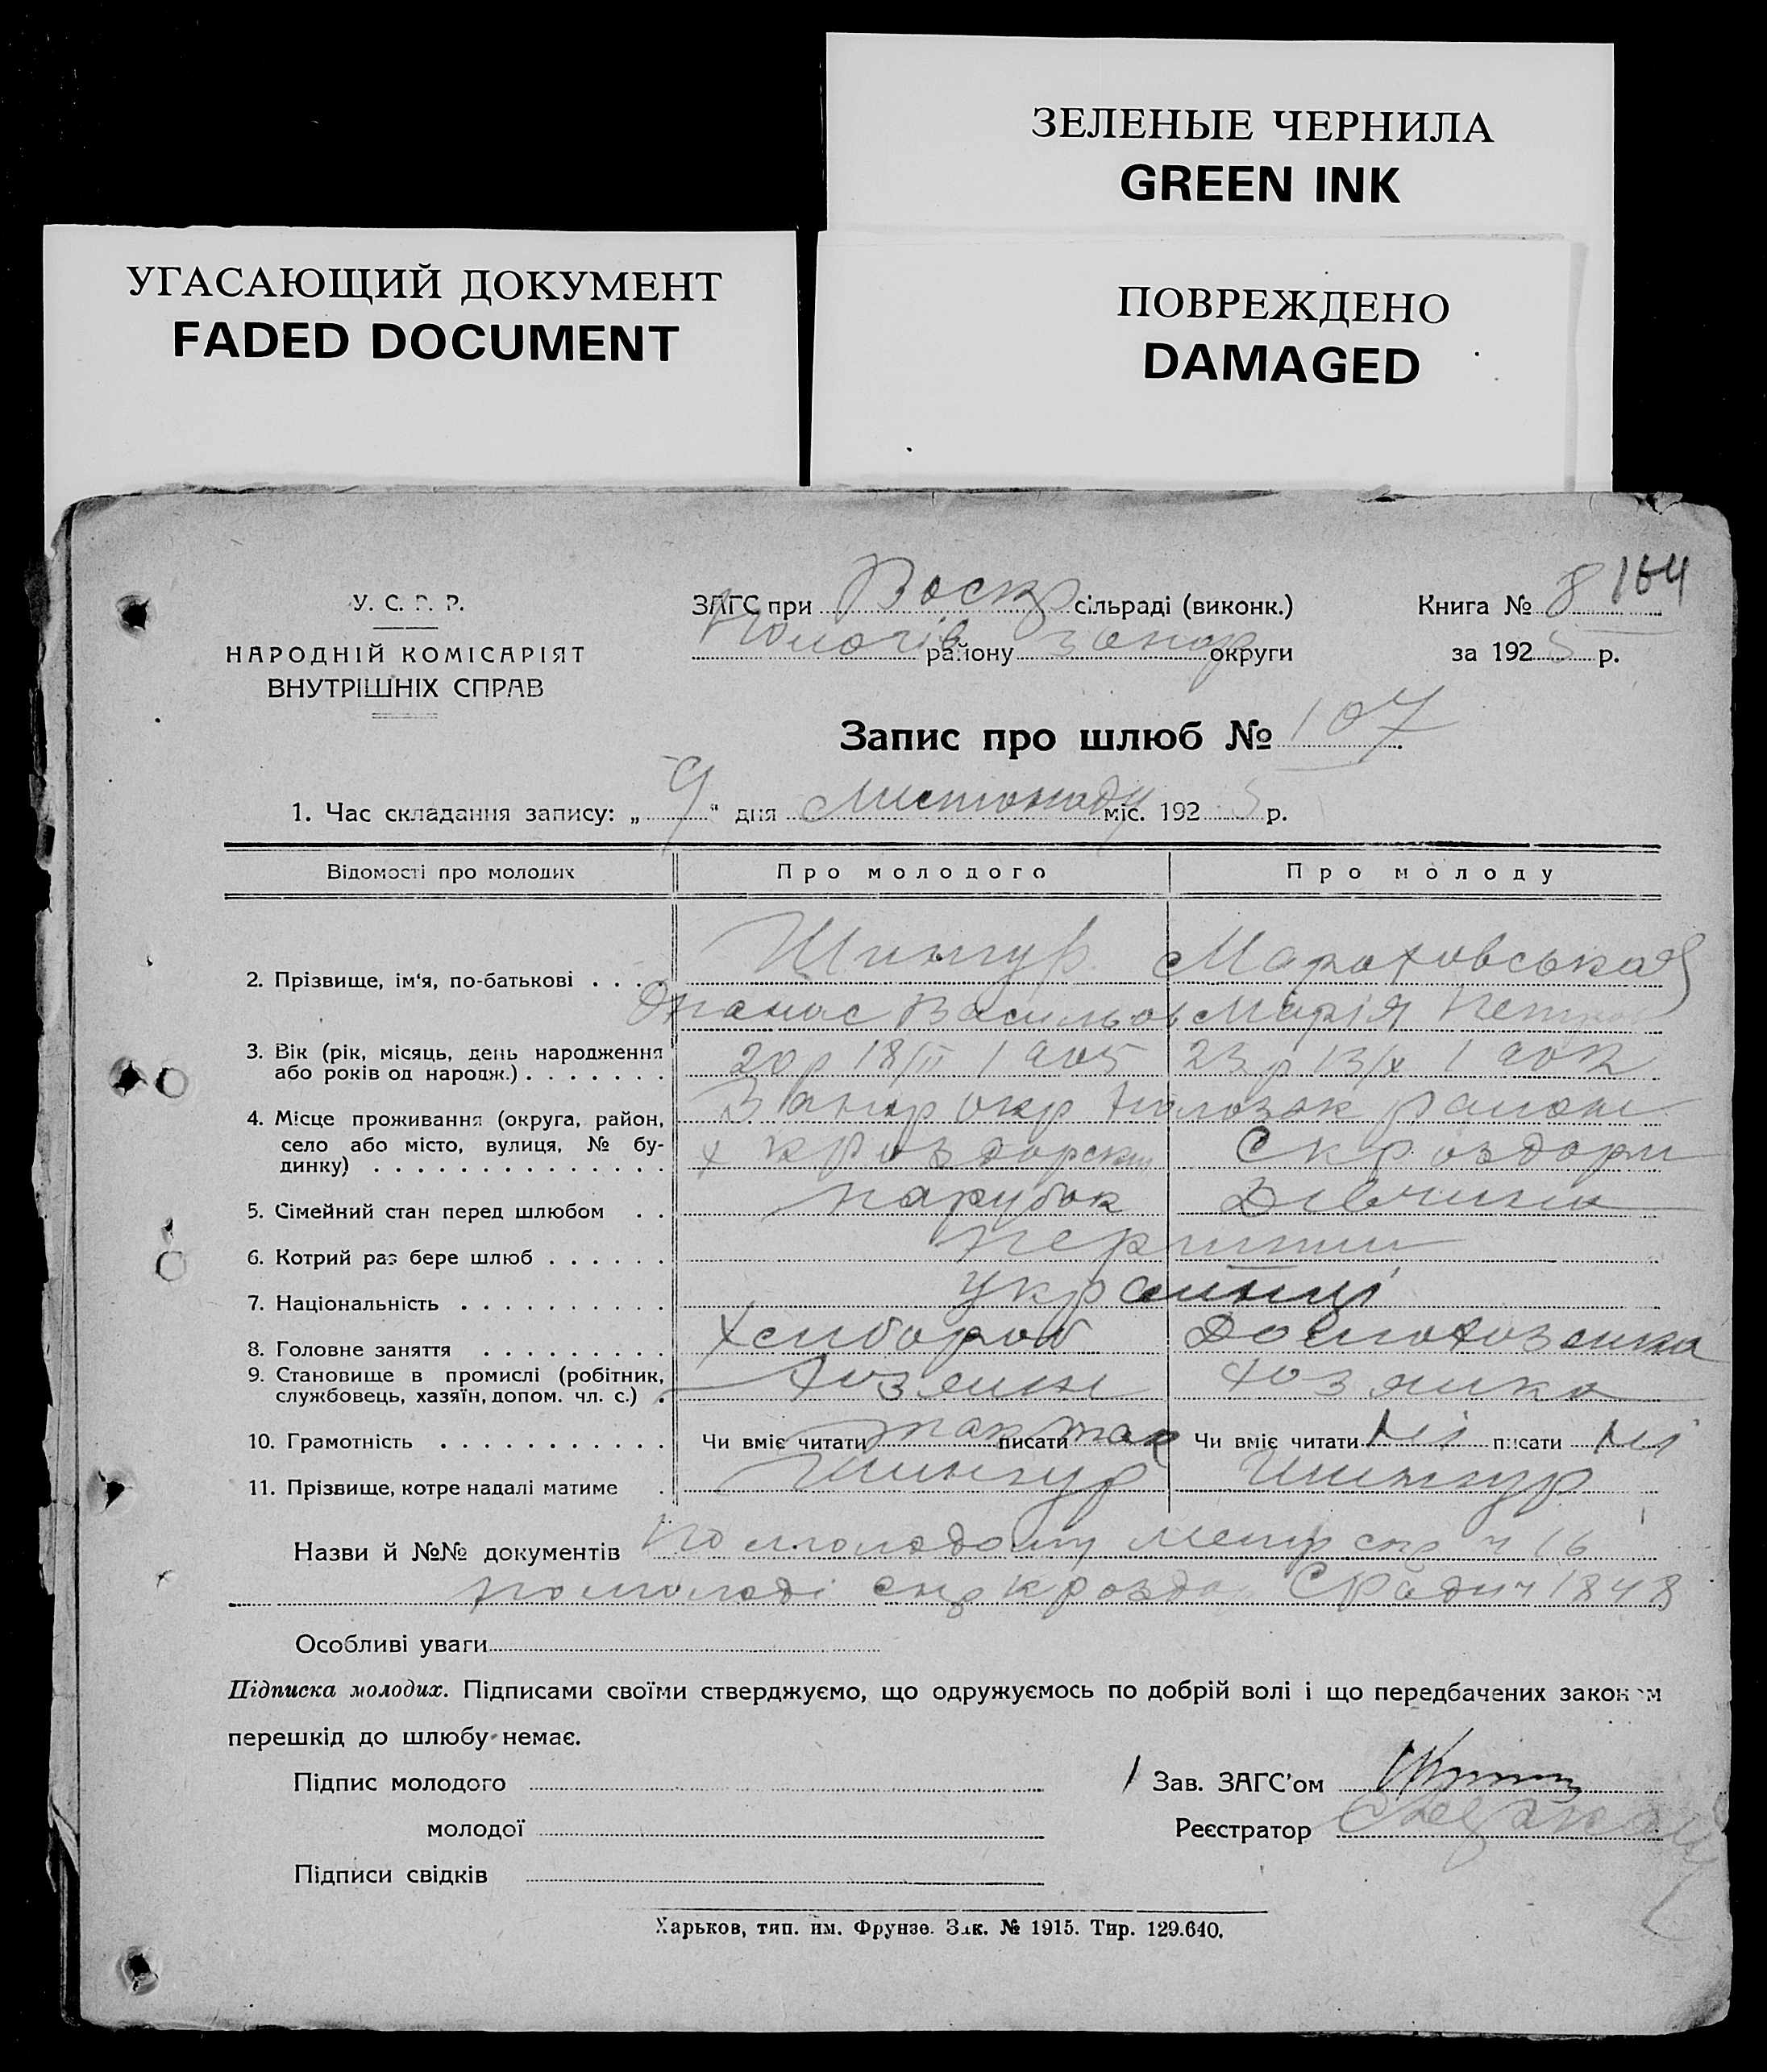 ЗЕЛЕНЫЕ ЧЕРНИЛА
GREEN INK
УГАСАЮЩИЙ ДОКУМЕНТ
FADED DOCUMENT
ПОВРЕЖДЕНО
DAMAGED
164
У. С. Р. Р.
НАРОДНІЙ КОМІСАРІЯТ
ВНУТРІШНІХ СПРАВ
ЗАГС при Воскр сільраді (виконк.)
Пологів району Запор округи
Книга № 8
за 1925 р.
Запис про шлюб № 107
1. Час складання запису: „9“ дня Листопаду міс. 1925 р.
Відомості про молодих Про молодого Про молоду
2. Прізвище, ім‘я, по-батькові . . . . Шингур
Панас Васильов Марія
3. Вік (рік, місяць, день народження або років од народж.) . . . . . . . 20 р 18/II 1905 23 р 13/X 1902
4. Місце проживання (округа, район, село або місто, вулиця, № будинку) . . . . . . . . . . . . . . Запор окр район
5. Сімейний стан перед шлюбом . . парубок Дівчина
6. Котрий раз бере шлюб . . . . . . перший
7. Національність . . . . . . . . . . українці
8. Головне заняття . . . . . . . . . Хлібороб Домохозяйка
9. Становище в промислі (робітник, службовець, хазяїн, допом. чл. с.) . Хозяин хозяйка
10. Грамотність . . . . . . . . . . . Чи вміє читати так писати так Чи вміє читати Ні писати Ні
11. Прізвище, котре надалі матиме . Шингур Шингур
Назви й №№ документів По молодому метр ч 16
по молоді 1848
Особливі уваги
Підписка молодих. Підписами своїми стверджуємо, що одружуємось по добрій волі і що передбачених законом
перешкід до шлюбу немає.
Підпис молодого
Зав. ЗАГС’ом
молодої
Реєстратор
Підписи свідків
Харьков, тип. им. Фрунзе. Зак. № 1915. Тир. 129.640.